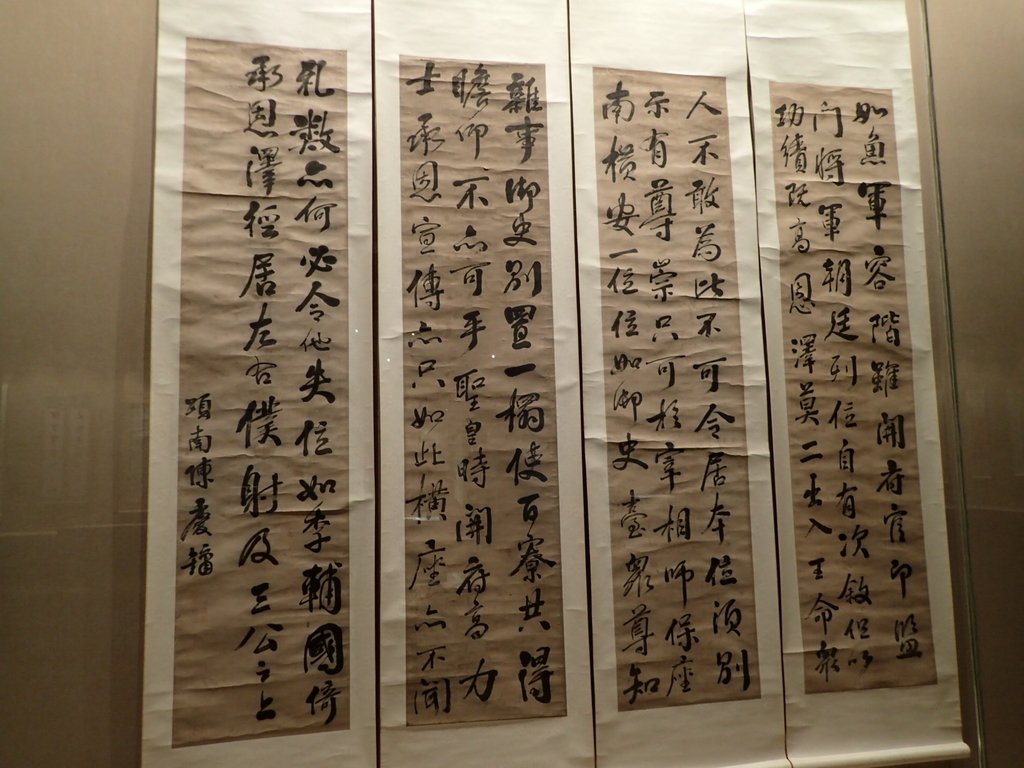 如魚軍容階雖開府官即監
门将軍朝廷列位自有次敘但以
功績既高恩澤莫二出入王命眾
人不敢為比不可令居本位須別
示有尊崇只可於宰相師保座
南横安一位如御史臺眾尊知
雜事御史別置一榻使百寮共得
瞻仰不亦可乎聖皇時開府高力
士承恩宣傳亦只如此横座亦不聞
礼數亦何必令他失位如李輔國倚
承恩澤徑居左右僕射及三公之上
項南陳慶鏞